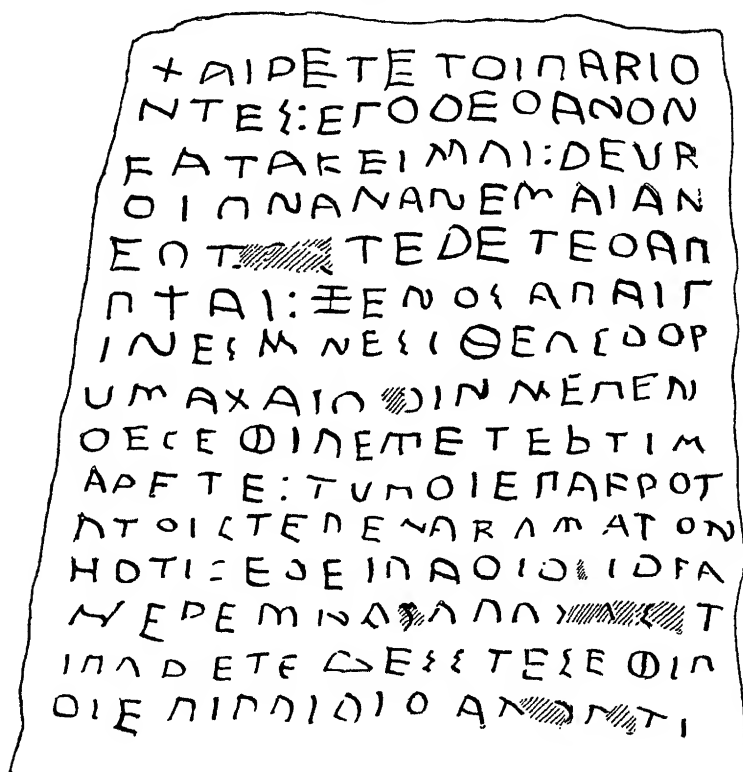 ΧΑΙΡΕΤΕ ΤΟΙΠΑΡΙΟ
ΝΤΕΣ:ΕΓΟΔΕΘΑΝΟΝ
ΚΑΤΑΚΕΙΜΑΙ:ΔΕΥΡ
ΟΙΠΝΑΝΑΝΕΜΑΙΑΝ
ΕΠΤ ΤΕΔΕΤΕΘΑΠ
ΠΤΑΙ:ΞΕΝΟΣΑΠΑΙΓ
ΙΝΕΣΜΝΕΣΙΘΕΛΣΔΟΡ
ΥΜΑΧΑΙΟ ΟΙΝΜΕΠΕΝ
ΟΕΣΕΦΙΛΕΜΕΤΕΡΤΙΜ
ΑΡΕΤΕ:ΤΥΜΟΙΕΠΑΚΡΟΤ
ΑΤΟΙΣΤΕΛΕΝΑΚΑΜΑΤΟΝ
ΗΟΤΙΣΕΡΕΙΠΑΟΙΟΙΙΔΙΑ
ΜΕΡΕΜΙΝΑ ΑΠΑ Τ
ΙΜΑΡΕΤΕ ΜΕΣΣΤΕΣΕΦΙΛ
ΟΙΕΠΙΠΑΙΔΙΟΑΝΟΝΤΙ